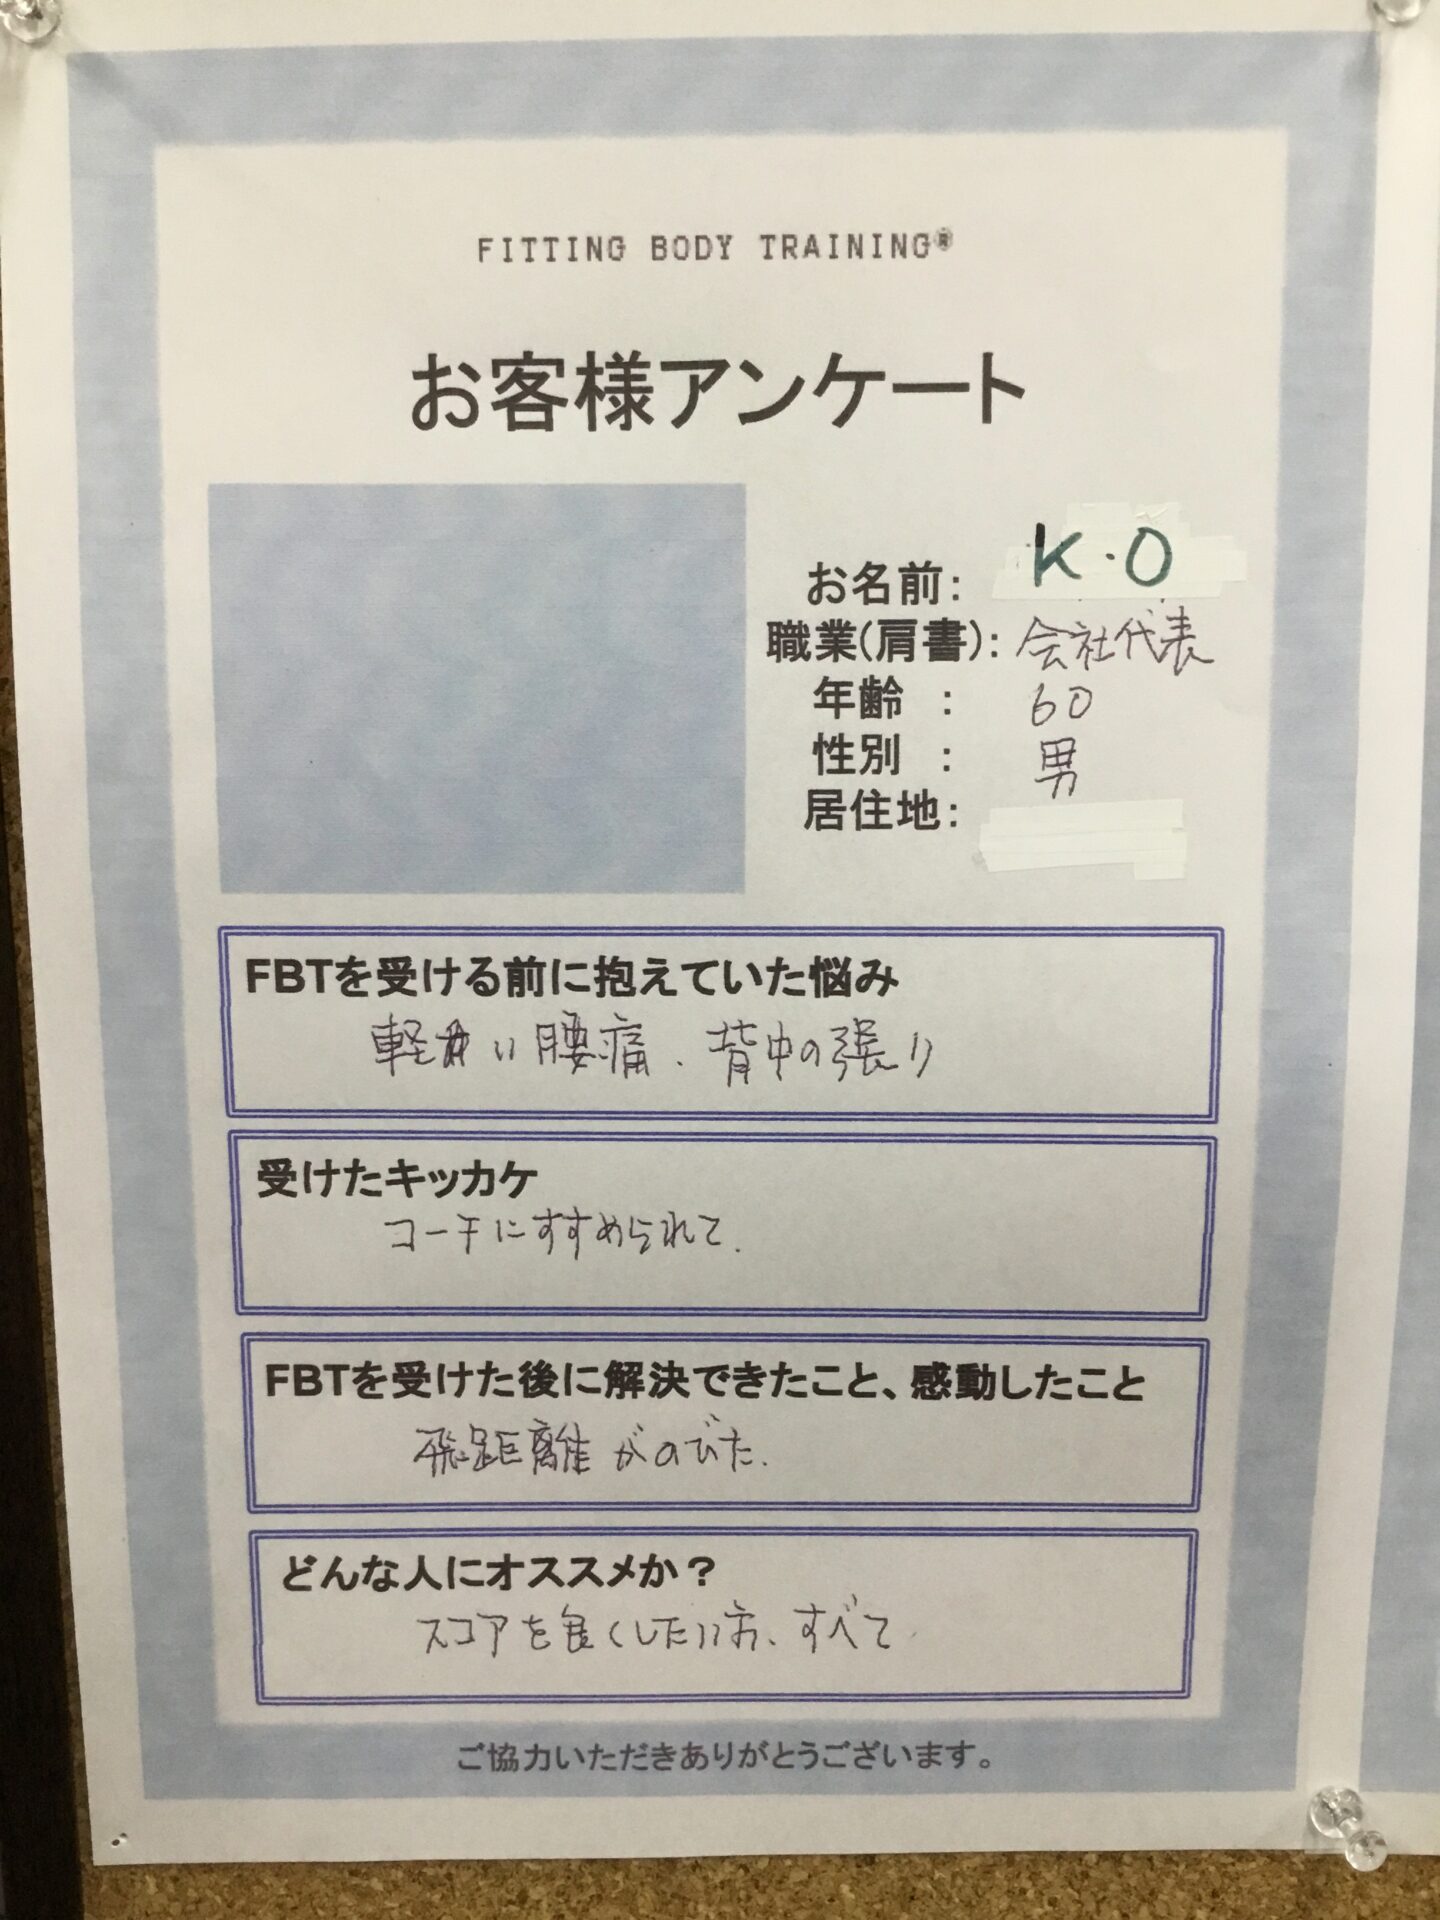 FITTING BODY TRAINING®
お客様アンケート
お名前： K・O
職業(肩書)： 会社代表
年齢 ： 60
性別 ： 男
居住地：
FBTを受ける前に抱えていた悩み
軽い腰痛、背中の張り
受けたキッカケ
コーチにすすめられて.
FBTを受けた後に解決できたこと、感動したこと
飛距離がのびた.
どんな人にオススメか？
スコアを良くしたい方、すべて
ご協力いただきありがとうございます。